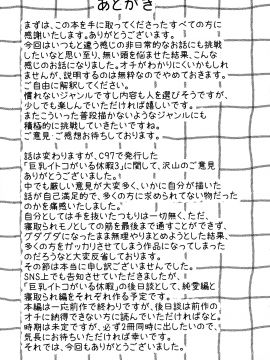 あとがき
まずは、この本を手に取ってくださったすべての方に
感謝いたします。ありがとうございます。
今回はいつもと違う感じの非日常的なお話にも挑戦
したいなと思い至り、無い頭を悩ませた結果、こんな
感じのお話になりました。オチがわかりにくいかもしれ
ませんが、説明するのは無粋なのでやめておきます。
ご自由に解釈してください。
慣れないジャンルですし内容も人を選びそうですが、
少しでも楽しんでいただければ嬉しいです。
またこういった普段描かないようなジャンルにも
積極的に挑戦していきたいですね。
ご意見・ご感想お待ちしております。
話は変わりますが、C97で発行した
「巨乳イトコがいる休暇3」に関して、沢山のご意見
ありがとうございました。
中でも厳しい意見が大変多く、いかに自分が描いた
話が自己満足的で、多くの方に求められてない物だった
のかを痛感いたしました。
自分としては手を抜いたつもりは一切無く、ただ、
寝取られモノとしての筋を最後まで通すことができず、
グダグダになったまま無理やりまとめようとした結果、
多くの方をガッカリさせてしまう作品になってしまった
のだろうなと大変反省しております。
その節は本当に申し訳ございませんでした。
SNS上でも告知させていただきましたが、
「巨乳イトコがいる休暇」の後日談として、純愛編と
寝取られ編をそれぞれ作る予定です。
本編は一応前作で終わりですが、後日談は前作の
オチに納得できない方に読んでいただければなと。
時期は未定ですが、必ず2冊同時に出したいので、
気長にお待ちいただければ幸いです。
それでは、今回もありがとうございました。